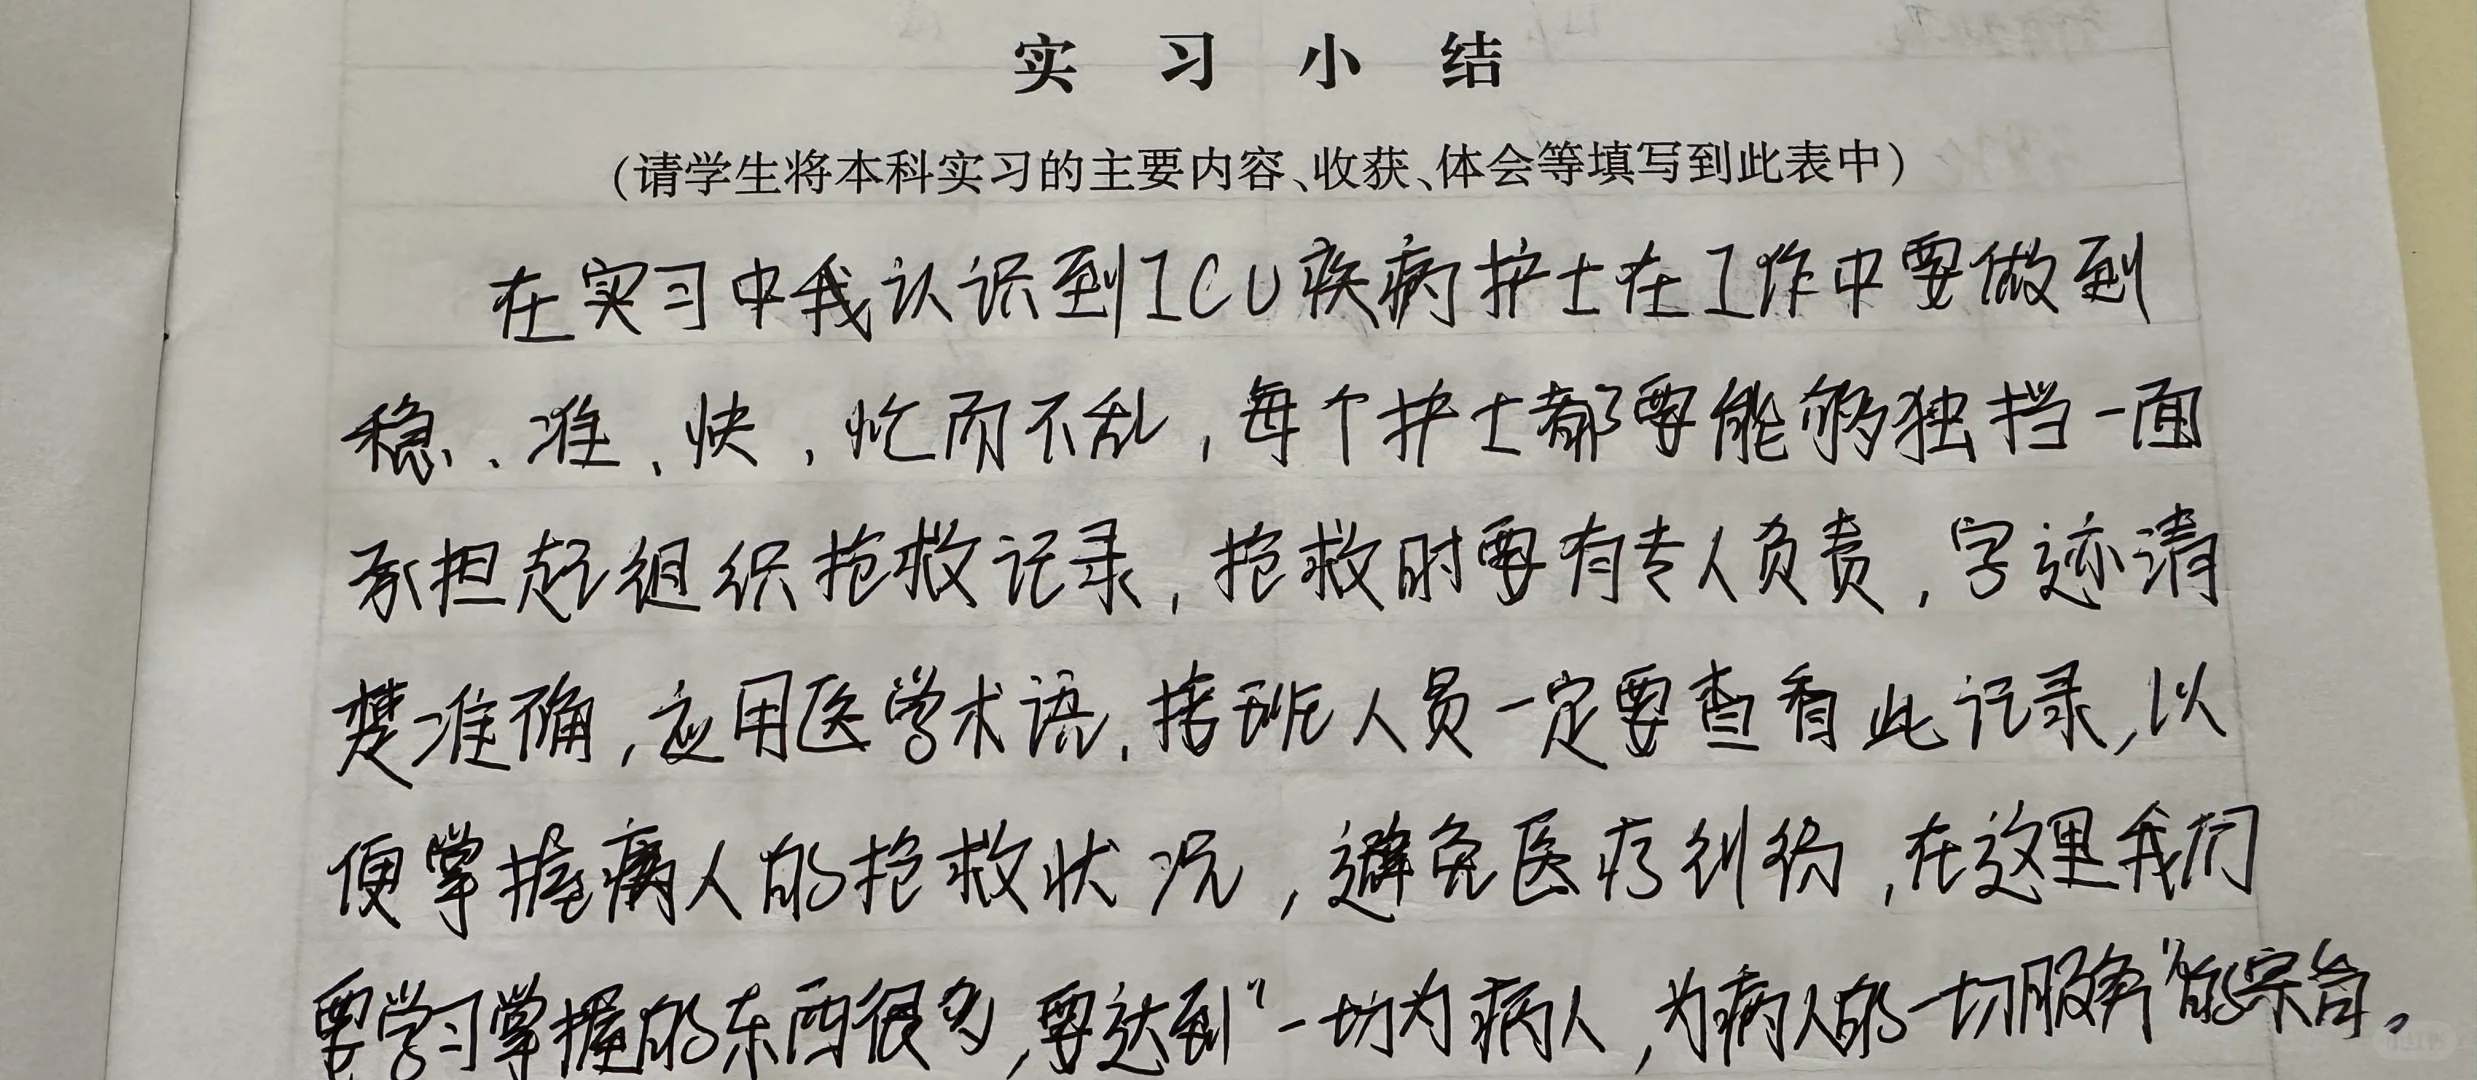 实习小结
(请学生将本科实习的主要内容、收获、体会等填写到此表中)
在实习中我认识到ICU疾病护士在工作中要做到
稳、准、快,忙而不乱,每个护士都要能够独挡一面
承担起组织抢救记录,抢救时要有专人负责,字迹清
楚准确,应用医学术语,接班人员一定要查看此记录,以
便掌握病人的抢救状况,避免医疗纠纷,在这里我们
要学习掌握的东西很多,要达到“一切为病人,为病人的一切服务”的宗旨。